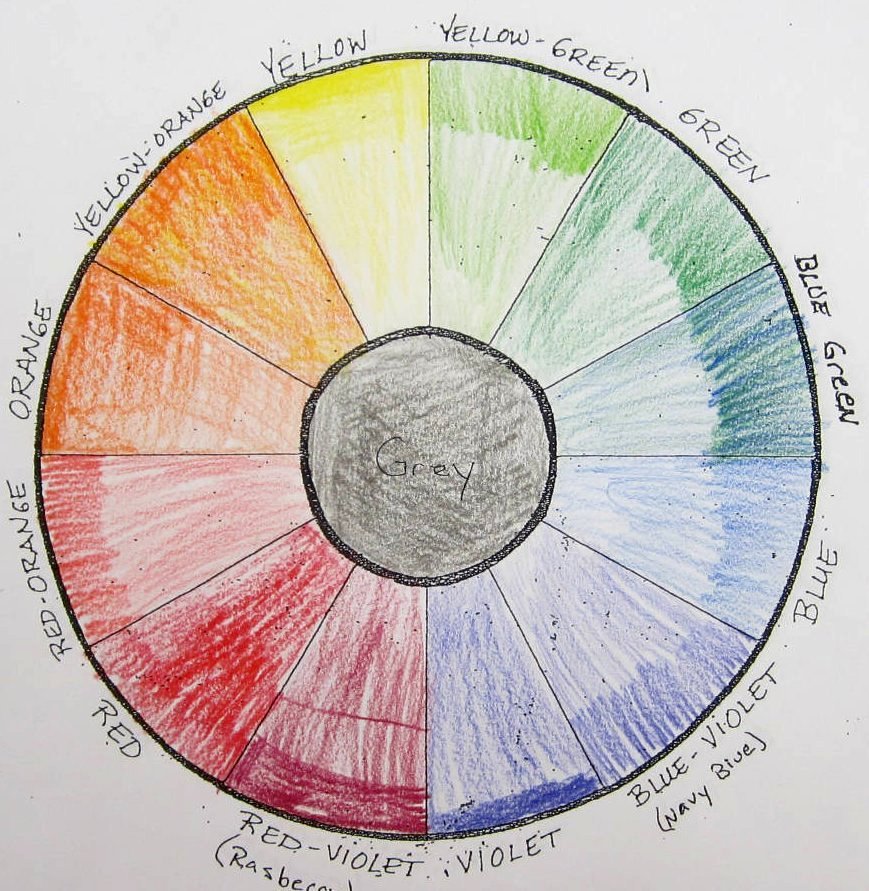 YELLOW
YELLOW-GREEN
GREEN
BLUE Green
BLUE
BLUE-VIOLET
(Navy Blue)
VIOLET
RED-VIOLET
RED
RED-ORANGE
ORANGE
YELLOW-ORANGE
Grey